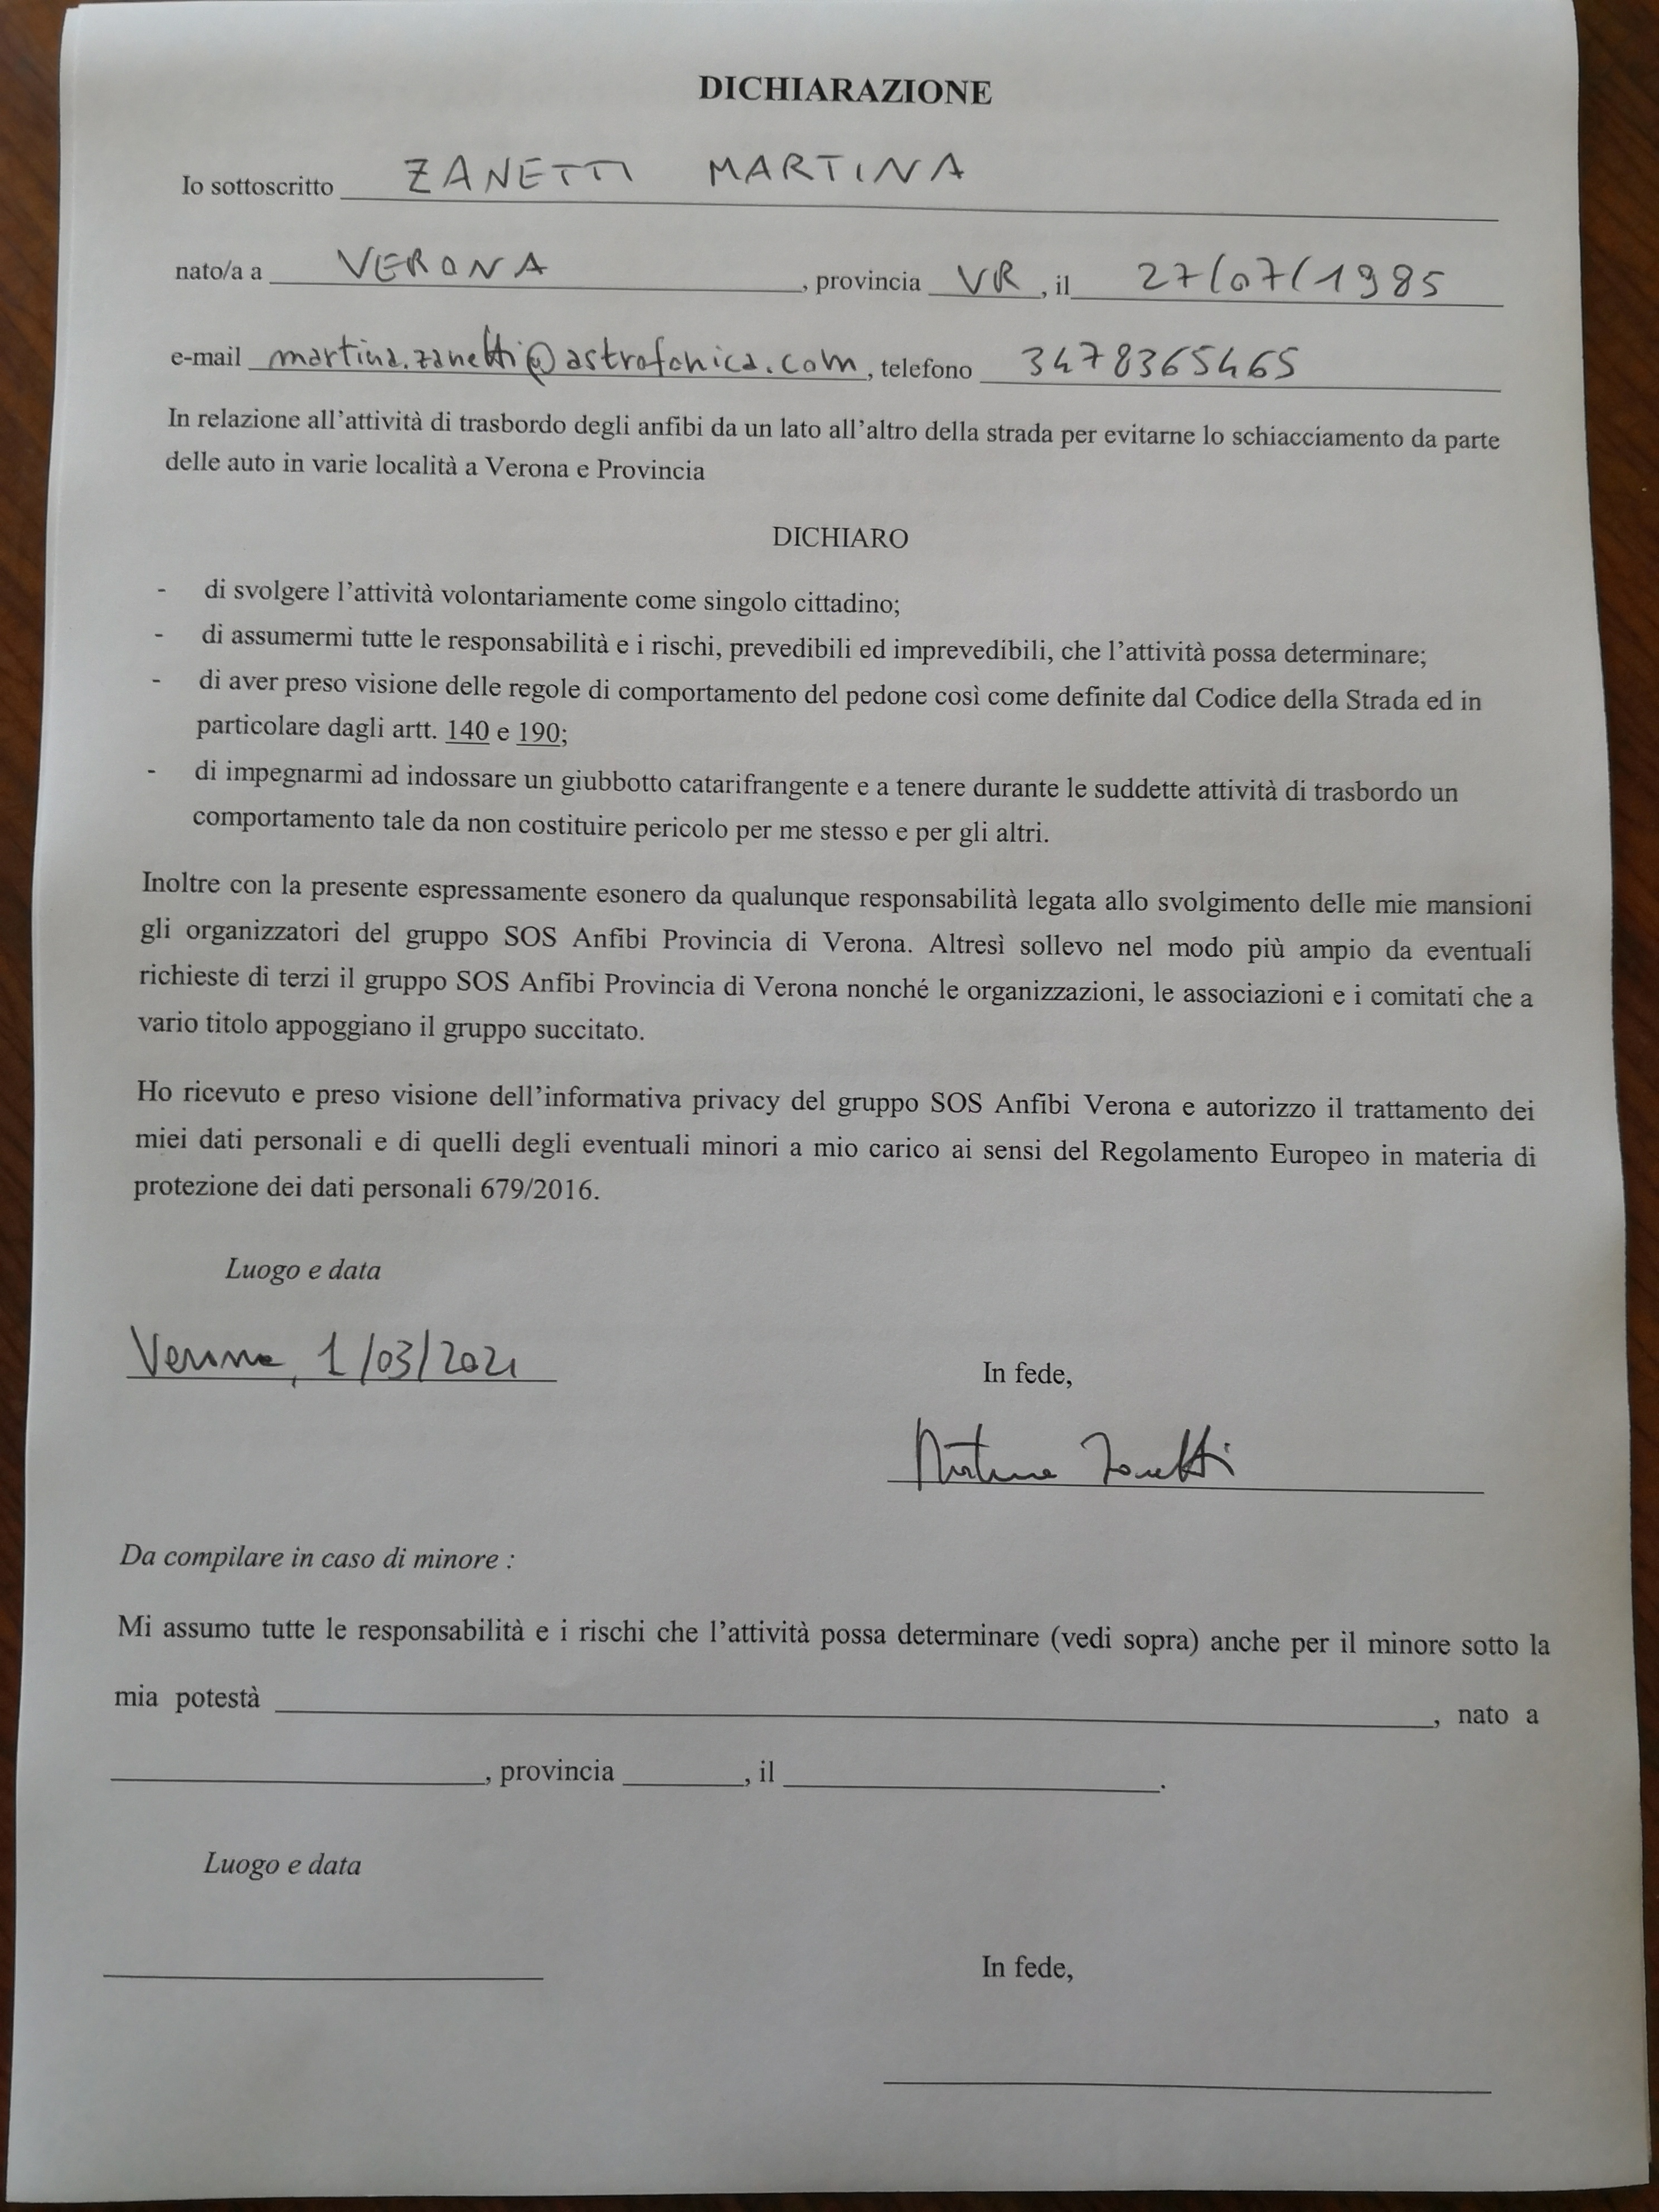 DICHIARAZIONE
Io sottoscritto ZANETTI MARTINA
nato/a a VERONA, provincia VR, il 27/07/1985
e-mail martina.zanetti@astrofonica.com, telefono 3478365465
In relazione all'attività di trasbordo degli anfibi da un lato all'altro della strada per evitarne lo schiacciamento da parte
delle auto in varie località a Verona e Provincia
DICHIARO
- di svolgere l'attività volontariamente come singolo cittadino;
- di assumermi tutte le responsabilità e i rischi, prevedibili ed imprevedibili, che l'attività possa determinare;
- di aver preso visione delle regole di comportamento del pedone così come definite dal Codice della Strada ed in
particolare dagli artt. 140 e 190;
- di impegnarmi ad indossare un giubbotto catarifrangente e a tenere durante le suddette attività di trasbordo un
comportamento tale da non costituire pericolo per me stesso e per gli altri.
Inoltre con la presente espressamente esonero da qualunque responsabilità legata allo svolgimento delle mie mansioni
gli organizzatori del gruppo SOS Anfibi Provincia di Verona. Altresì sollevo nel modo più ampio da eventuali
richieste di terzi il gruppo SOS Anfibi Provincia di Verona nonché le organizzazioni, le associazioni e i comitati che a
vario titolo appoggiano il gruppo succitato.
Ho ricevuto e preso visione dell'informativa privacy del gruppo SOS Anfibi Verona e autorizzo il trattamento dei
miei dati personali e di quelli degli eventuali minori a mio carico ai sensi del Regolamento Europeo in materia di
protezione dei dati personali 679/2016.
Luogo e data
Verona, 1/03/2021
In fede,
Martina Zanetti
Da compilare in caso di minore :
Mi assumo tutte le responsabilità e i rischi che l'attività possa determinare (vedi sopra) anche per il minore sotto la
mia potestà , nato a
, provincia , il .
Luogo e data
In fede,